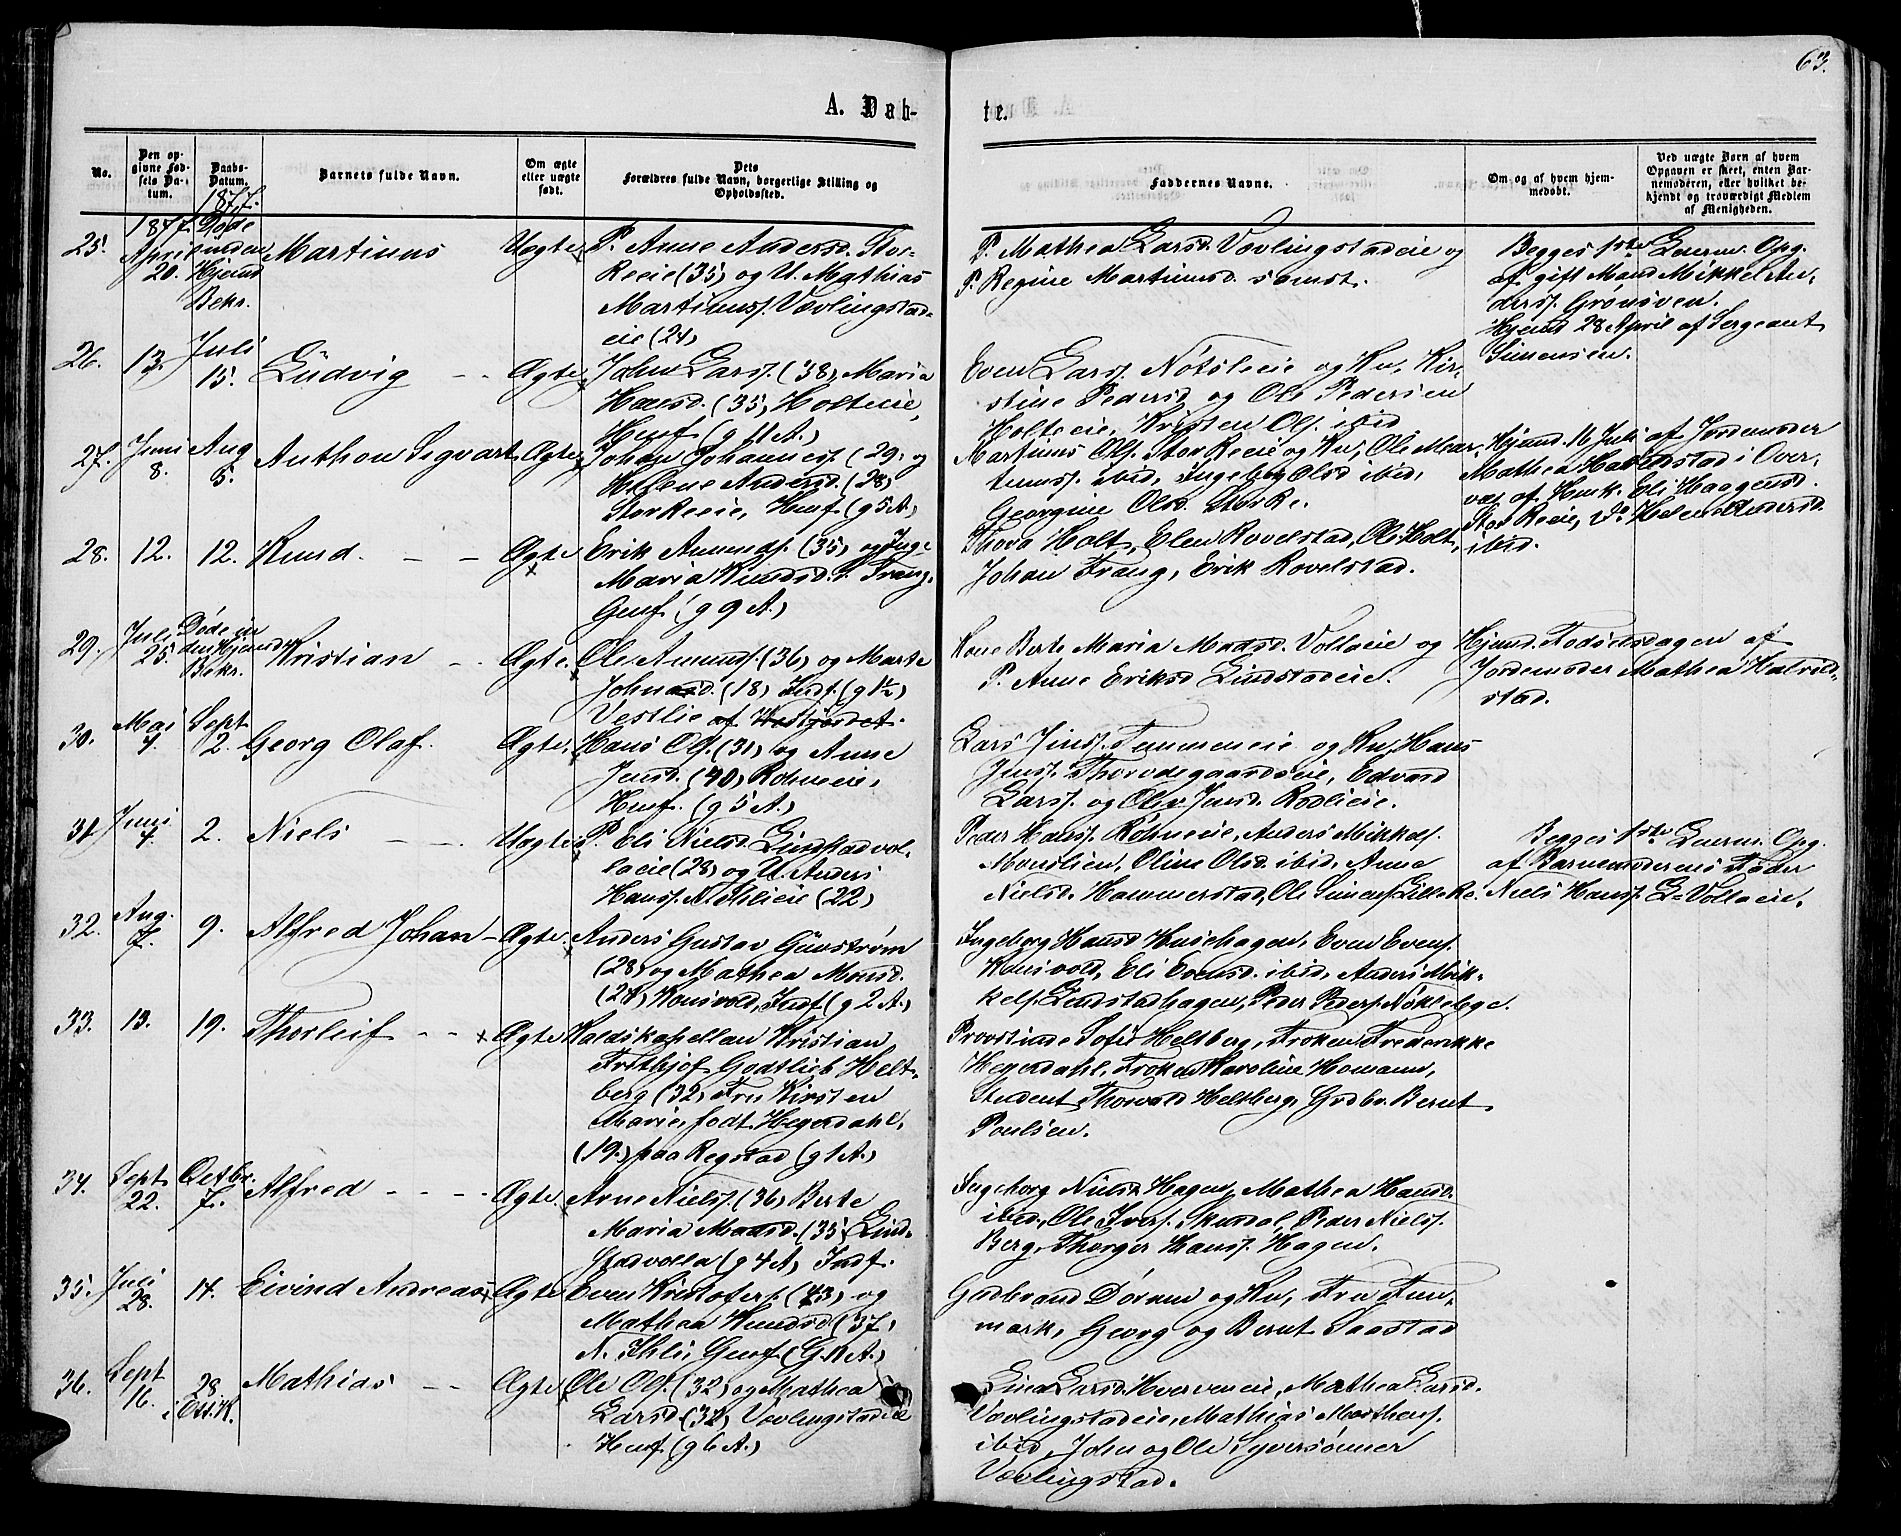 63.
A. Døb-
te.
No.
Den op-
givne Fød-
sels Da-
tum.
Daabs-
Datum.
Barnets fulde Navn.
Om ægte
eller uægte
født.
Dets
Forældres fulde Navn, borgerlige Stilling og
Opholdssted.
Faddernes Navne.
Om og af hvem hjem-
medøbt.
Ved uægte Børn af hvem
Opgaven er skeet, enten Bar-
nemoderen, eller hvilket be-
kjendt og troværdigt Medlem
af Menigheden.
1877.
25.
1877.
April
20.
Døde
inden
Hjemd.
Bekr.
Martinus
Uægte
P. Anne Andersd. Stor-
Keeie (35) og U. Mathias
Martinuss. Vævlingstad-
eie (24)
P. Mathea Larsd. Vævlingstadeie og
P. Regine Martinusd. samst.
Begges 1ste Leierm. Opg.
af gift Mand Mikkel An-
derss. Grønsveen.
Hjemd. 28 April af Sergeant
Simensen.
26.
13.
Juli
15.
Ludvig
Ægte
Johan Larss. (38), Maria
Hansd. (35) Holteie,
Husf. (g 11 A.)
Even Larss. Nötsleeie og Ku, Kir-
stine Pedersd. og Ole Pedersen
Holteie, Kristen Ols. ibid.
27.
Juni
8.
Aug
5.
Anthon Sigvart
Ægte
Johan Johanness. (29) og
Helene Andersd. (28)
StorKeeie, Husf. (g 5 A.)
Martinus Ols. StorKeeie og Ku, Ole Mar-
tinuss. ibid, Ingeborg Olsd ibid,
Georgine Olsd. StorKe.
Hjemd. 16 Juli af Jordemoder
Mathea Halvedstad i Over-
vær af Husk. Eli Haagensd.
Stor Keeie, do Helene Andersd.
ibid.
28.
12.
12.
Knud.
Ægte
Erik Amunds. (35) og Inge-
Maria Knudsd. i Trang,
Gmf. (g 9 A.)
Thora Holt, Elen Rovelstad, Ole Holt,
Johan Trang, Erik Rovelstad.
29.
Juli
25.
Døde in
den Hjemd.
Bekr.
Kristian
Ægte.
Ole Amunds. (36) og Marte
Johnsd. (18) Indf. (g 1/2)
Vestlie af Vestfjordet A.
Kone Berte Maria Madsd. Vollaeie og
P. Anne Eriksd. Lindstadeie.
Hjemd. Fødselsdagen af
Jordemoder Mathea Halveld-
stad.
30.
Mai
4.
Sept
2.
Georg Olaf.
Ægte.
Hans Ols. (31) og Anne
Jensd. (40) Rohneeie,
Husf. (g 5 A.)
Lars Jenss. Tummeneie og Ku, Hans
Jenss. Thorodegaardseie, Edvard
Larss. og Olea Jensd. Rodlieie.
31.
Juni
4.
2.
Niels
Uægte
P. Eli Nielsd. Lindstadvol-
laeie (28) og U. Anders
Hanss. N. Ihlieie (22)
Peder Hanss. Rohneeie, Anders Mikkels.
Moenlien, Oline Olsd. ibid. Anne
Nielsd. Hammerstad, Ole Simens. LilleKe.
Begges 1ste Leierm. Opg.
af Barnemoderens Fader
Niels Hanss. L-Vollaeie.
32.
Aug.
7.
9.
Alfred Johan
Ægte
Anders Gustav Günstrøm
(28) og Mathea Monsd.
(24) Konsvold, Indf. (g 2 A.)
Ingeborg Hansd. Husehagen, Even Evens.
Konsvold, Eli Evensd. ibid, Anders Mik-
kels. Lindstadhagen, Peder Peders. Nöklebye.
33.
13.
19.
Thorleif
Ægte
Kaldskapellan Kristian
Frithjof Godtlieb Helt-
berg (32) Fru Kirsten
Marie, født Hegerdahl.
(19.) paa Regstad (g 1 A.)
Provstinde Sofie Heltberg, Frøken Frederikke
Hegerdahl, Frøken Karoline Homann,
Student Thorvald Heltberg, Gdbr. Bernt
Poulsen.
34.
Sept
22.
Octbr.
7.
Alfred
Ægte.
Arne Niels. (36) Berte
Maria Madsd. (35) Lind-
stadvolla (g 4 A) Indf.
Ingeborg Nielsd. Hagen, Mathea Hansd.
ibid., Ole Ivers. Skusdal, Peder Niels.
Berg, Thorger Hanss. Hagen.
35.
Juli
28.
14.
Eivind Andreas
Ægte
Even Kristofers. (43) og
Mathea Knudsd. (37)
N. Ihli, Gmf. (G. 11 A.)
Gudbrand Dörum og Ku, Fru Fun-
mark, Georg og Bernt Saastad
36.
Sept
16.
28.
i Ott. K.
Mathias
Ægte
Ole Ols. (32) og Mathea
Larsd. (32) Vævlingstadeie
Husf. (g 6 A.)
Lina Larsd. Hverveneie, Mathea Larsd.
Vævlingstadeie, Mathias Marthens.
ibid, John og Ole Syversønner
Vævlingstad.